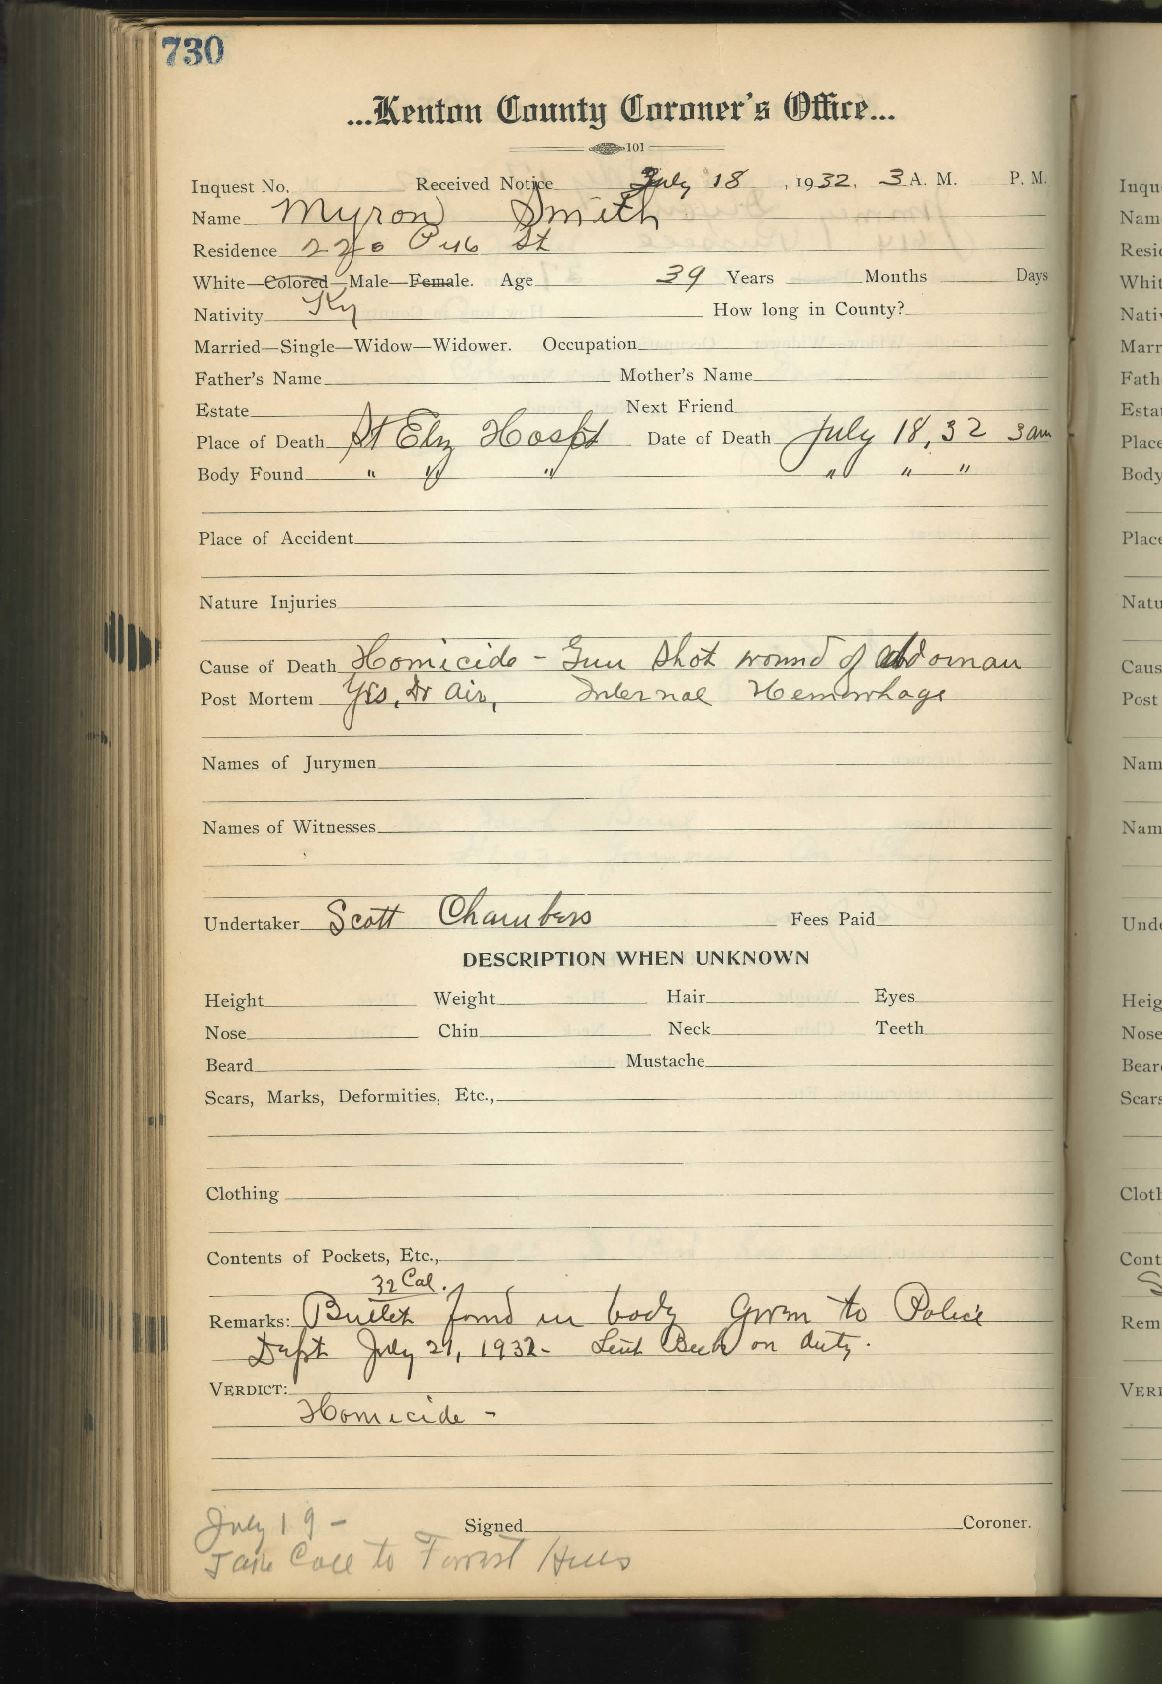 730
...Kenton County Coroner's Office...
101
Inquest No. Received Notice July 18, 1932, 3 A. M. P. M.
Name Myron Smith
Residence 220 St
White—Colored—Male—Female. Age 39 Years Months Days
Nativity Ky How long in County?
Married—Single—Widow—Widower. Occupation
Father's Name Mother's Name
Estate Next Friend
Place of Death St Elz Hospt Date of Death July 18, 32 3 am
Body Found " " " " " "
Place of Accident
Nature Injuries
Cause of Death Homicide - Gun Shot wound of abdoman
Post Mortem Yes, Dr Air, Internal Hemorrhage
Names of Jurymen
Names of Witnesses
Undertaker Scott Chambers Fees Paid
DESCRIPTION WHEN UNKNOWN
Height Weight Hair Eyes
Nose Chin Neck Teeth
Beard Mustache
Scars, Marks, Deformities, Etc.,
Clothing
Contents of Pockets, Etc.,
32 Cal.
Remarks: Bullet found in body Given to Police
Dept July 21, 1932 - Leut on duty.
VERDICT:
Homicide -
Signed Coroner.
July 19 -
Call to Forrest Hills
Inqu
Nam
Resid
Whit
Nativ
Marr
Fath
Estat
Place
Body
Place
Natu
Caus
Post
Nam
Nam
Unde
Heig
Nose
Bear
Scars
Clotl
Cont
Rem
VERI